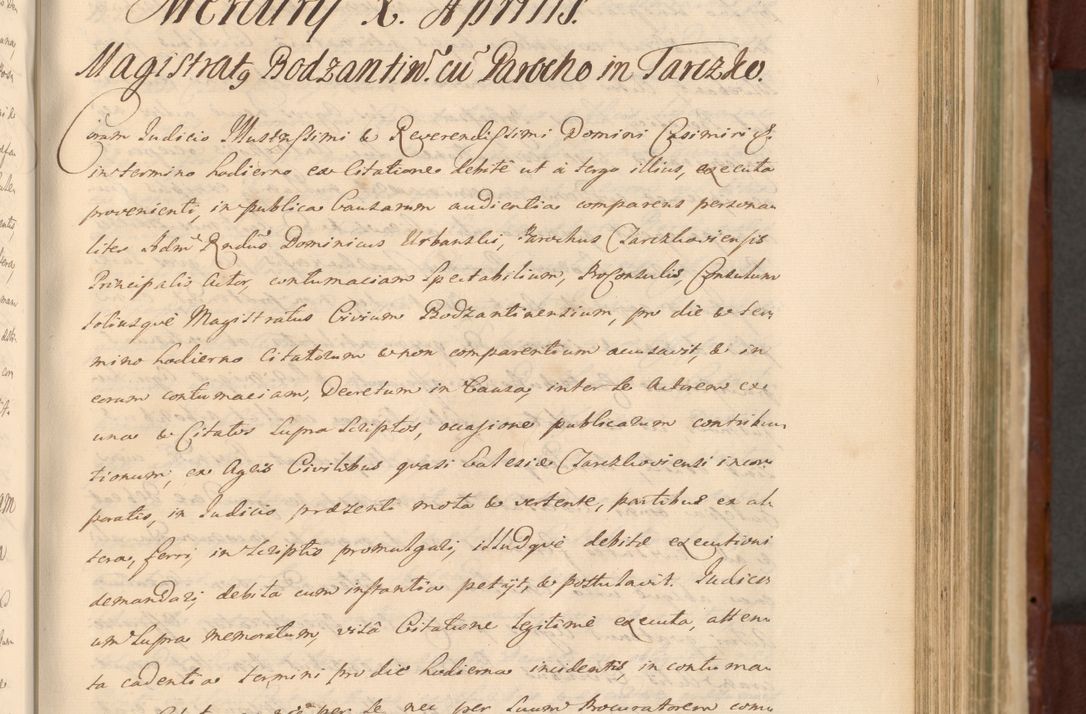 Mercurij X. Aprilis.
Magistratq Bodzantinw. cũ Parocho in Tarczko.
Coram Judicio Illustrissimi & Reverendissimi Domini Casimiri &c.
in termino hodierno ex Citatione debitè ut à tergo illius, executa
provenienti, in publica Causarum audientia comparens persona-
liter Admˢ Rndus Dominicus Urbanski, Parochus Tarczkoviensis
Principalis Actor, contumaciam Spectabilium, ProConsulis, Consulum
totiusquè Magistratus Civium Bodzantinensium, pro die & ter-
mino hodierno citatorum & non comparentium accusavit, & in
eorum contumaciam, Decretum in Causa, inter se Actorem ex
una & Citatos supra scriptos, occasione publicarum contribu-
tionum, ex Agris Civilibus quasi Ecclesiæ Tarczkoviensi incor-
poratis, in Judicio præsenti mota & vertente, partibus ex al-
tera, ferri, in scriptis promulgari, illudquè debitæ executioni
demandari, debita cum instantia petijt, & postulavit. Judici-
um supra memoratum, visâ Citatione legitimè executa, atten-
ta cadentia termini pro die hodierna incidentis, in contuma-
per se nec per suum Procuratorem com-